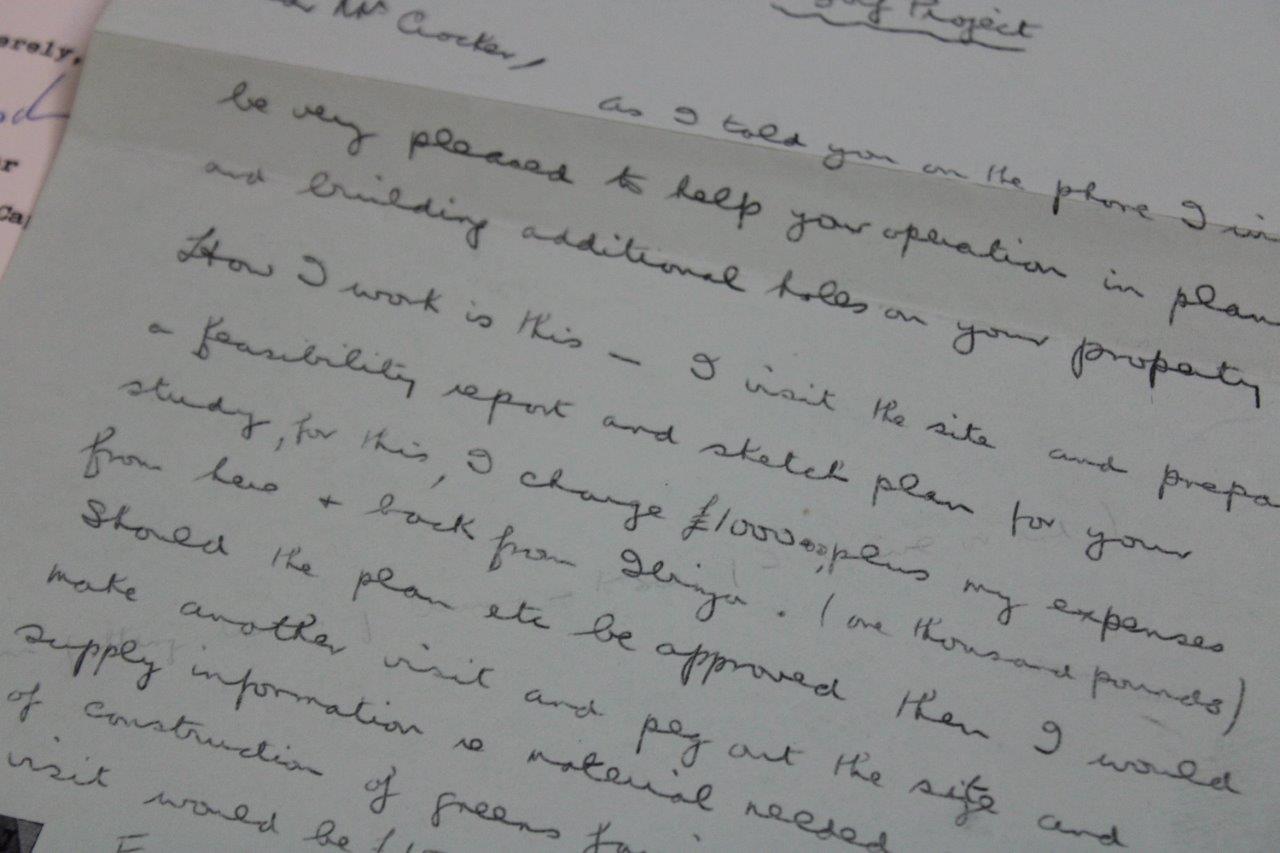 Project
Mr Crocker,
as I told you on the phone I
be very pleased to help your operation in plan
and building additional holes on your property
How I work is this – I visit the site and prepa
a feasibility report and sketch plan for your
study, for this, I charge £1000.00, plus my expenses
from here + back from . (one thousand pounds)
Should the plan etc be approved then I would
make another visit and peg out the site and
supply information re material needed
of construction of greens
visit would be
erely,
r
Cal